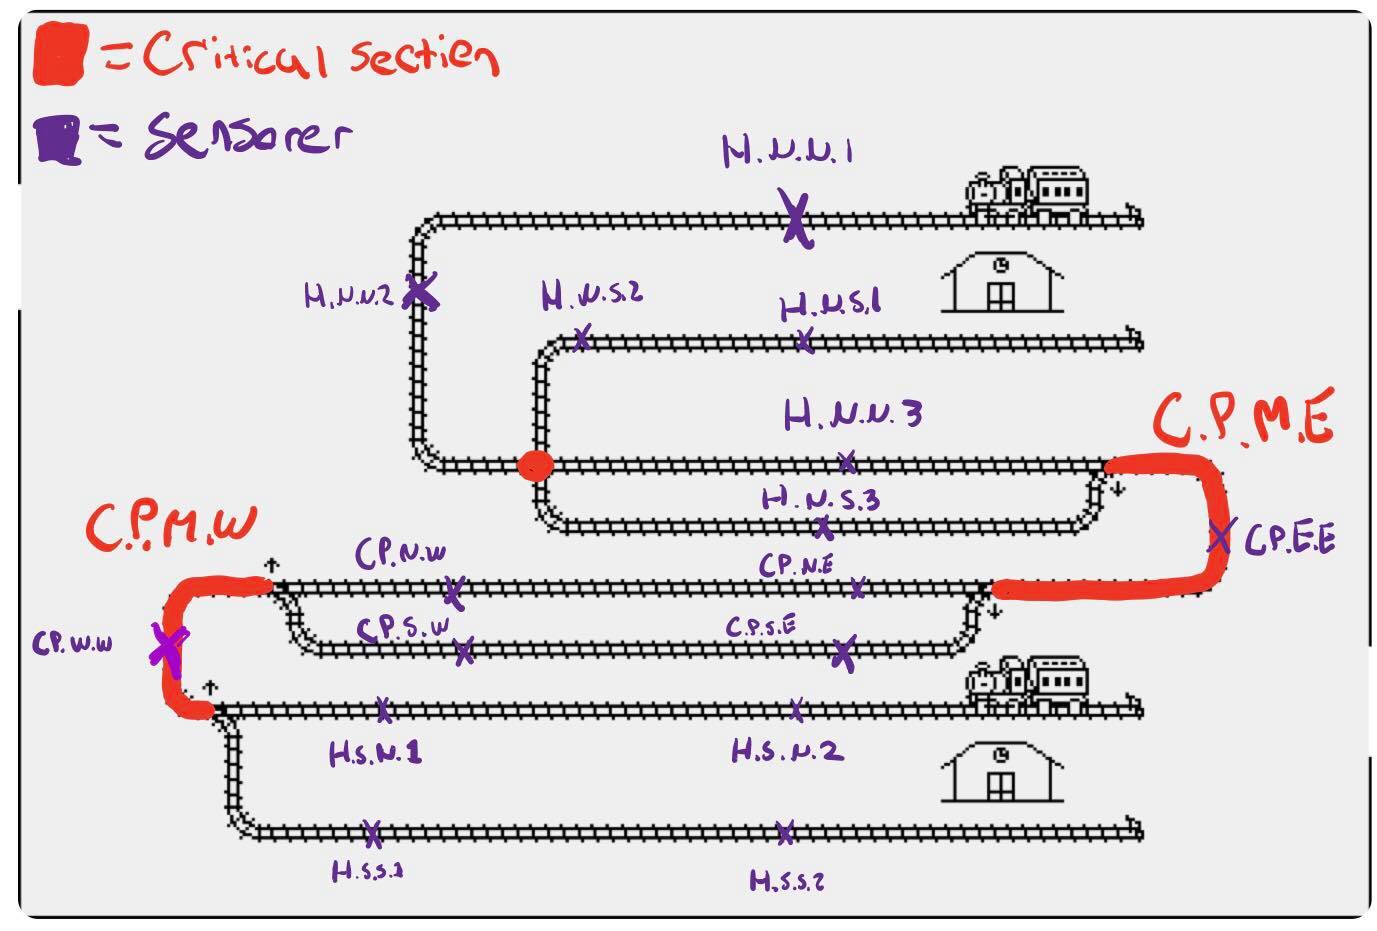 = Critical section
= Sensorer
H.N.N.1
H.N.N.2
H.N.S.2
H.N.S.1
H.N.N.3
C.P.M.E
H.N.S.3
C.P.M.W
C.P.E.E
CP.N.W
CP.N.E
CP.S.W
C.P.S.E
CP.W.W
H.S.N.1
H.S.N.2
H.S.S.1
H.S.S.2